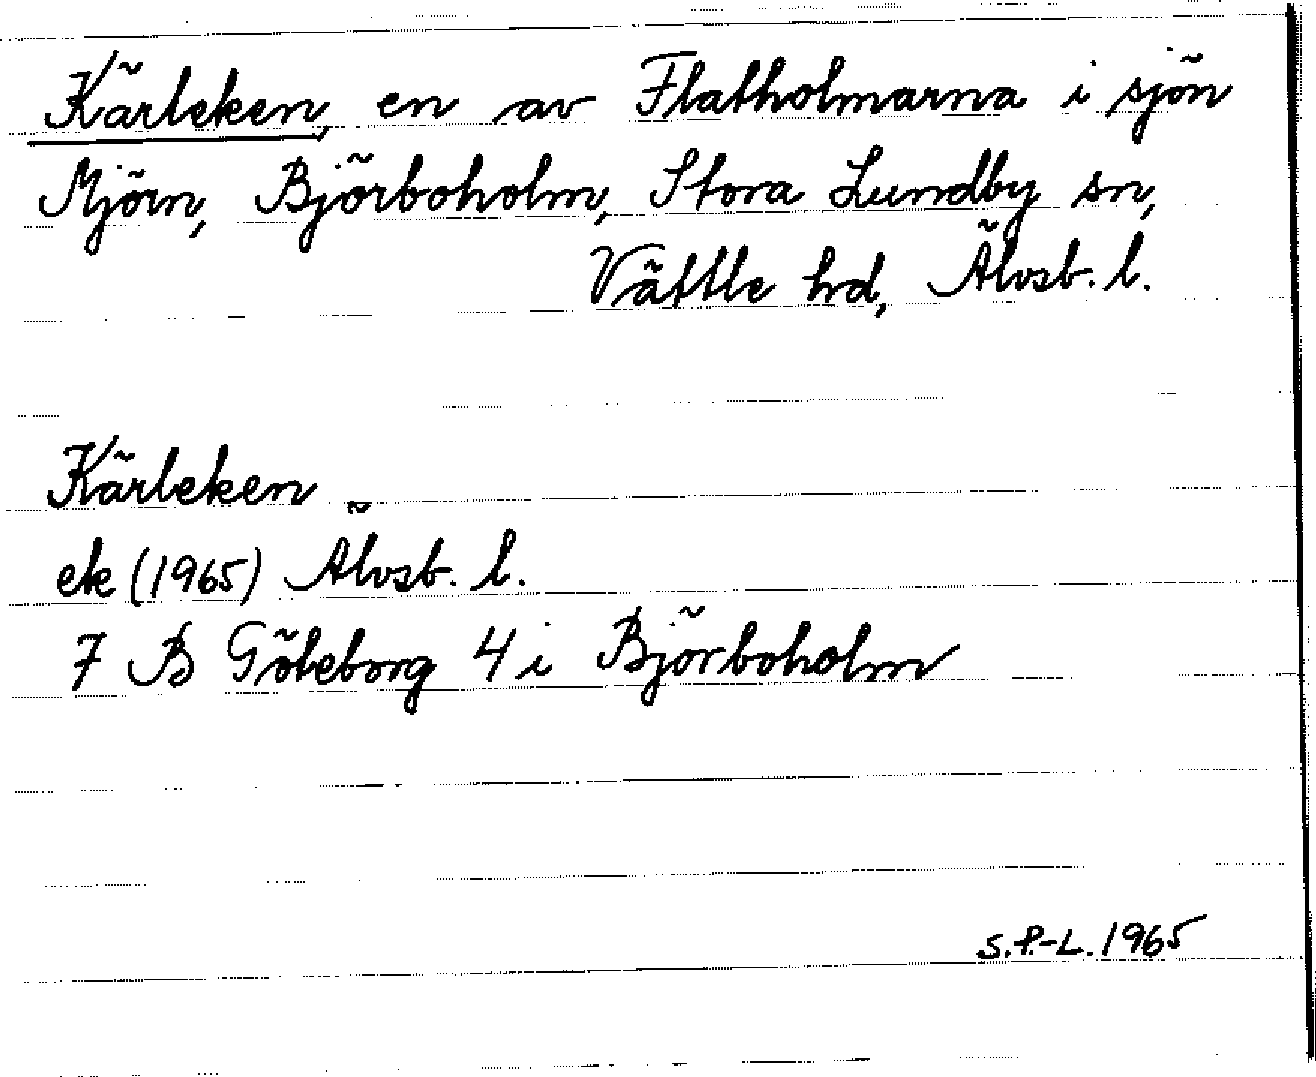 Kärleken, en av Flatholmarna i sjön
Mjörn, Björboholm, Stora Lundby sn,
Vättle hd, Älvsb. l.
Kärleken
ek (1965) Älvsb. l.
7 B Göteborg 4 i Björboholm
S.P-L. 1965